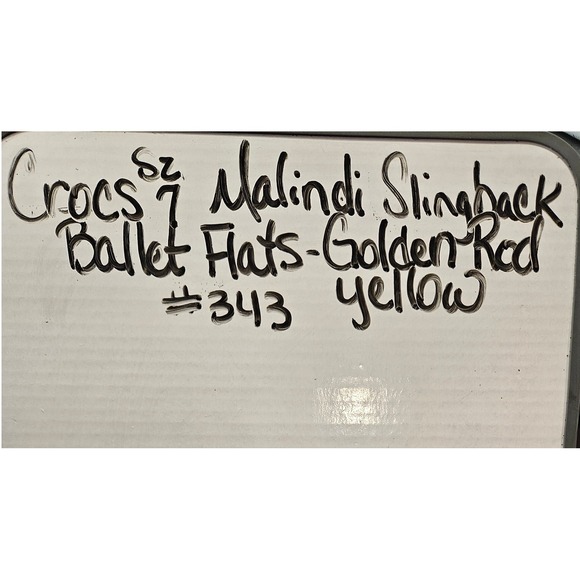 Crocs Sz 7 Malindi Slingback
Ballet Flats - Golden Rod
#343 yellow